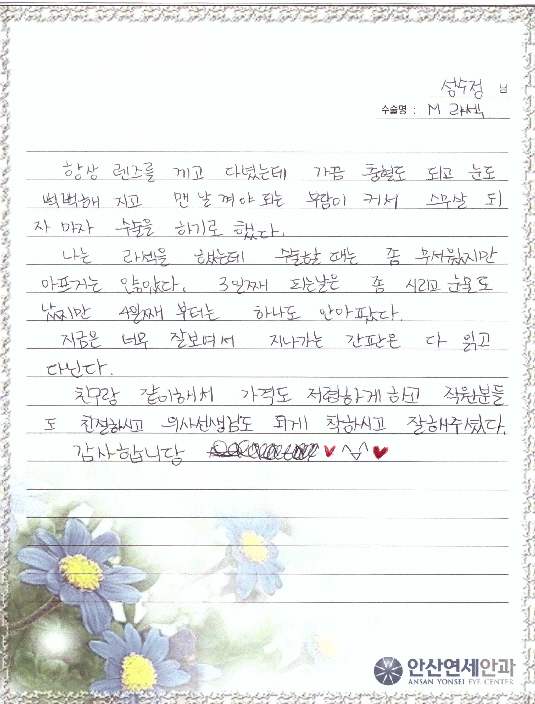 성수정 님
수술명 : M 라섹
항상 렌즈를 끼고 다녔는데 가끔 충혈도 되고 눈도
뻑뻑해 지고 맨날 껴야 되는 부담이 커서 스무살 되
자 마자 수술을 하기로 했다.
나는 라섹을 했는데 수술할 때는 좀 무서웠지만
아프거는 않았다. 3일째 되는날은 좀 시리고 눈물도
났지만 4일째 부터는 하나도 안아팠다.
지금은 너무 잘보여서 지나가는 간판은 다 읽고
다닌다.
친구랑 같이해서 가격도 저렴하게 하고 직원분들
도 친절하시고 의사선생님도 되게 착하시고 잘해주셨다.
감사합니당
안산연세안과
ANSAN YONSEI EYE CENTER